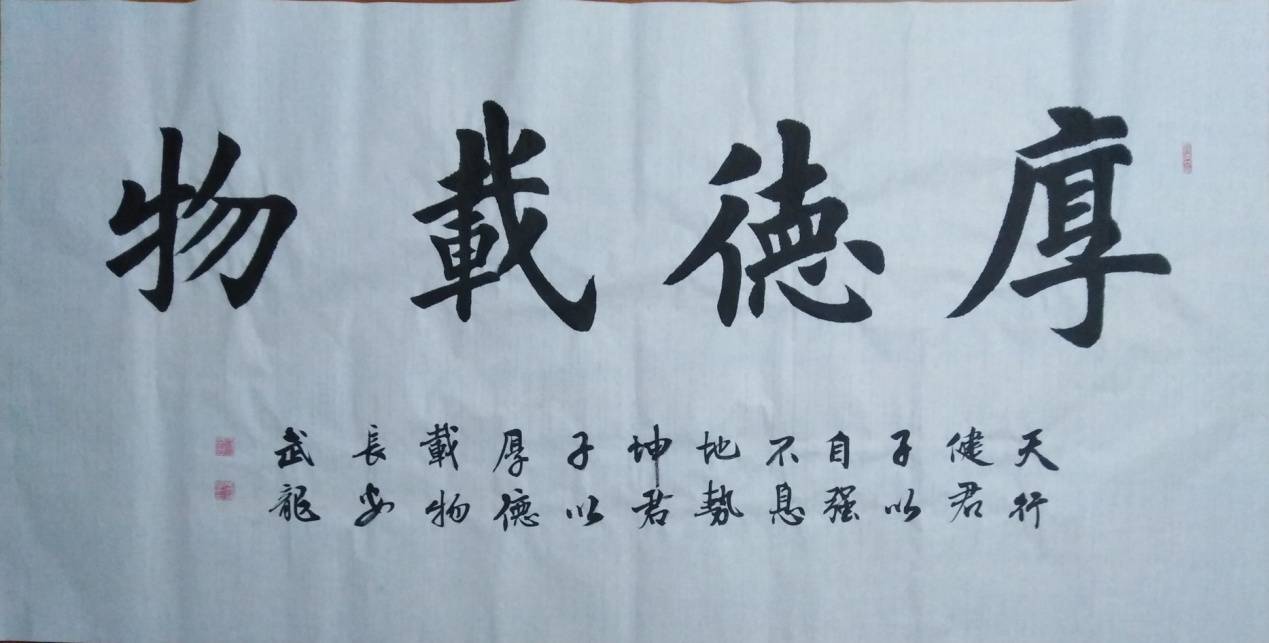 厚德載物
天行
健君
子以
自强
不息
地勢
坤君
子以
厚德
載物
長安
武龍